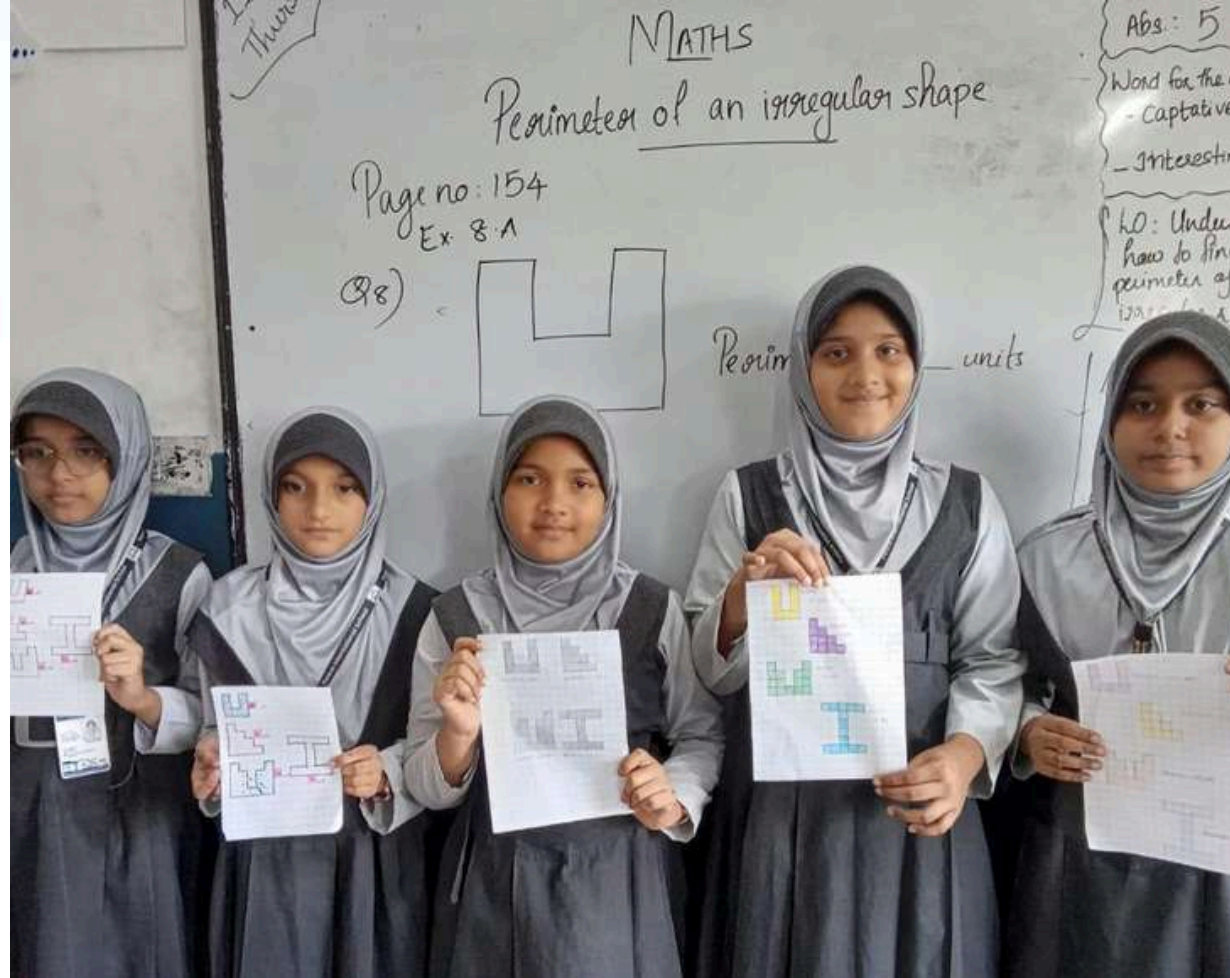 Thurs
MATHS
Perimeter of an irregular shape
Page no: 154
Ex. 8.A
Q8)
units
Abs.: 5
Word for the
- Captative
- Interestin
LO: Unde
how to fin
perimeter